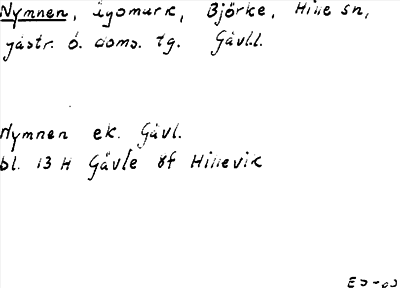 Nymnen, ägomark, Björke, Hille sn,
gästr. ö. doms. tg. Gävl.l.
Nymnen ek. Gävl.
bl. 13 H Gävle öf Hillevik